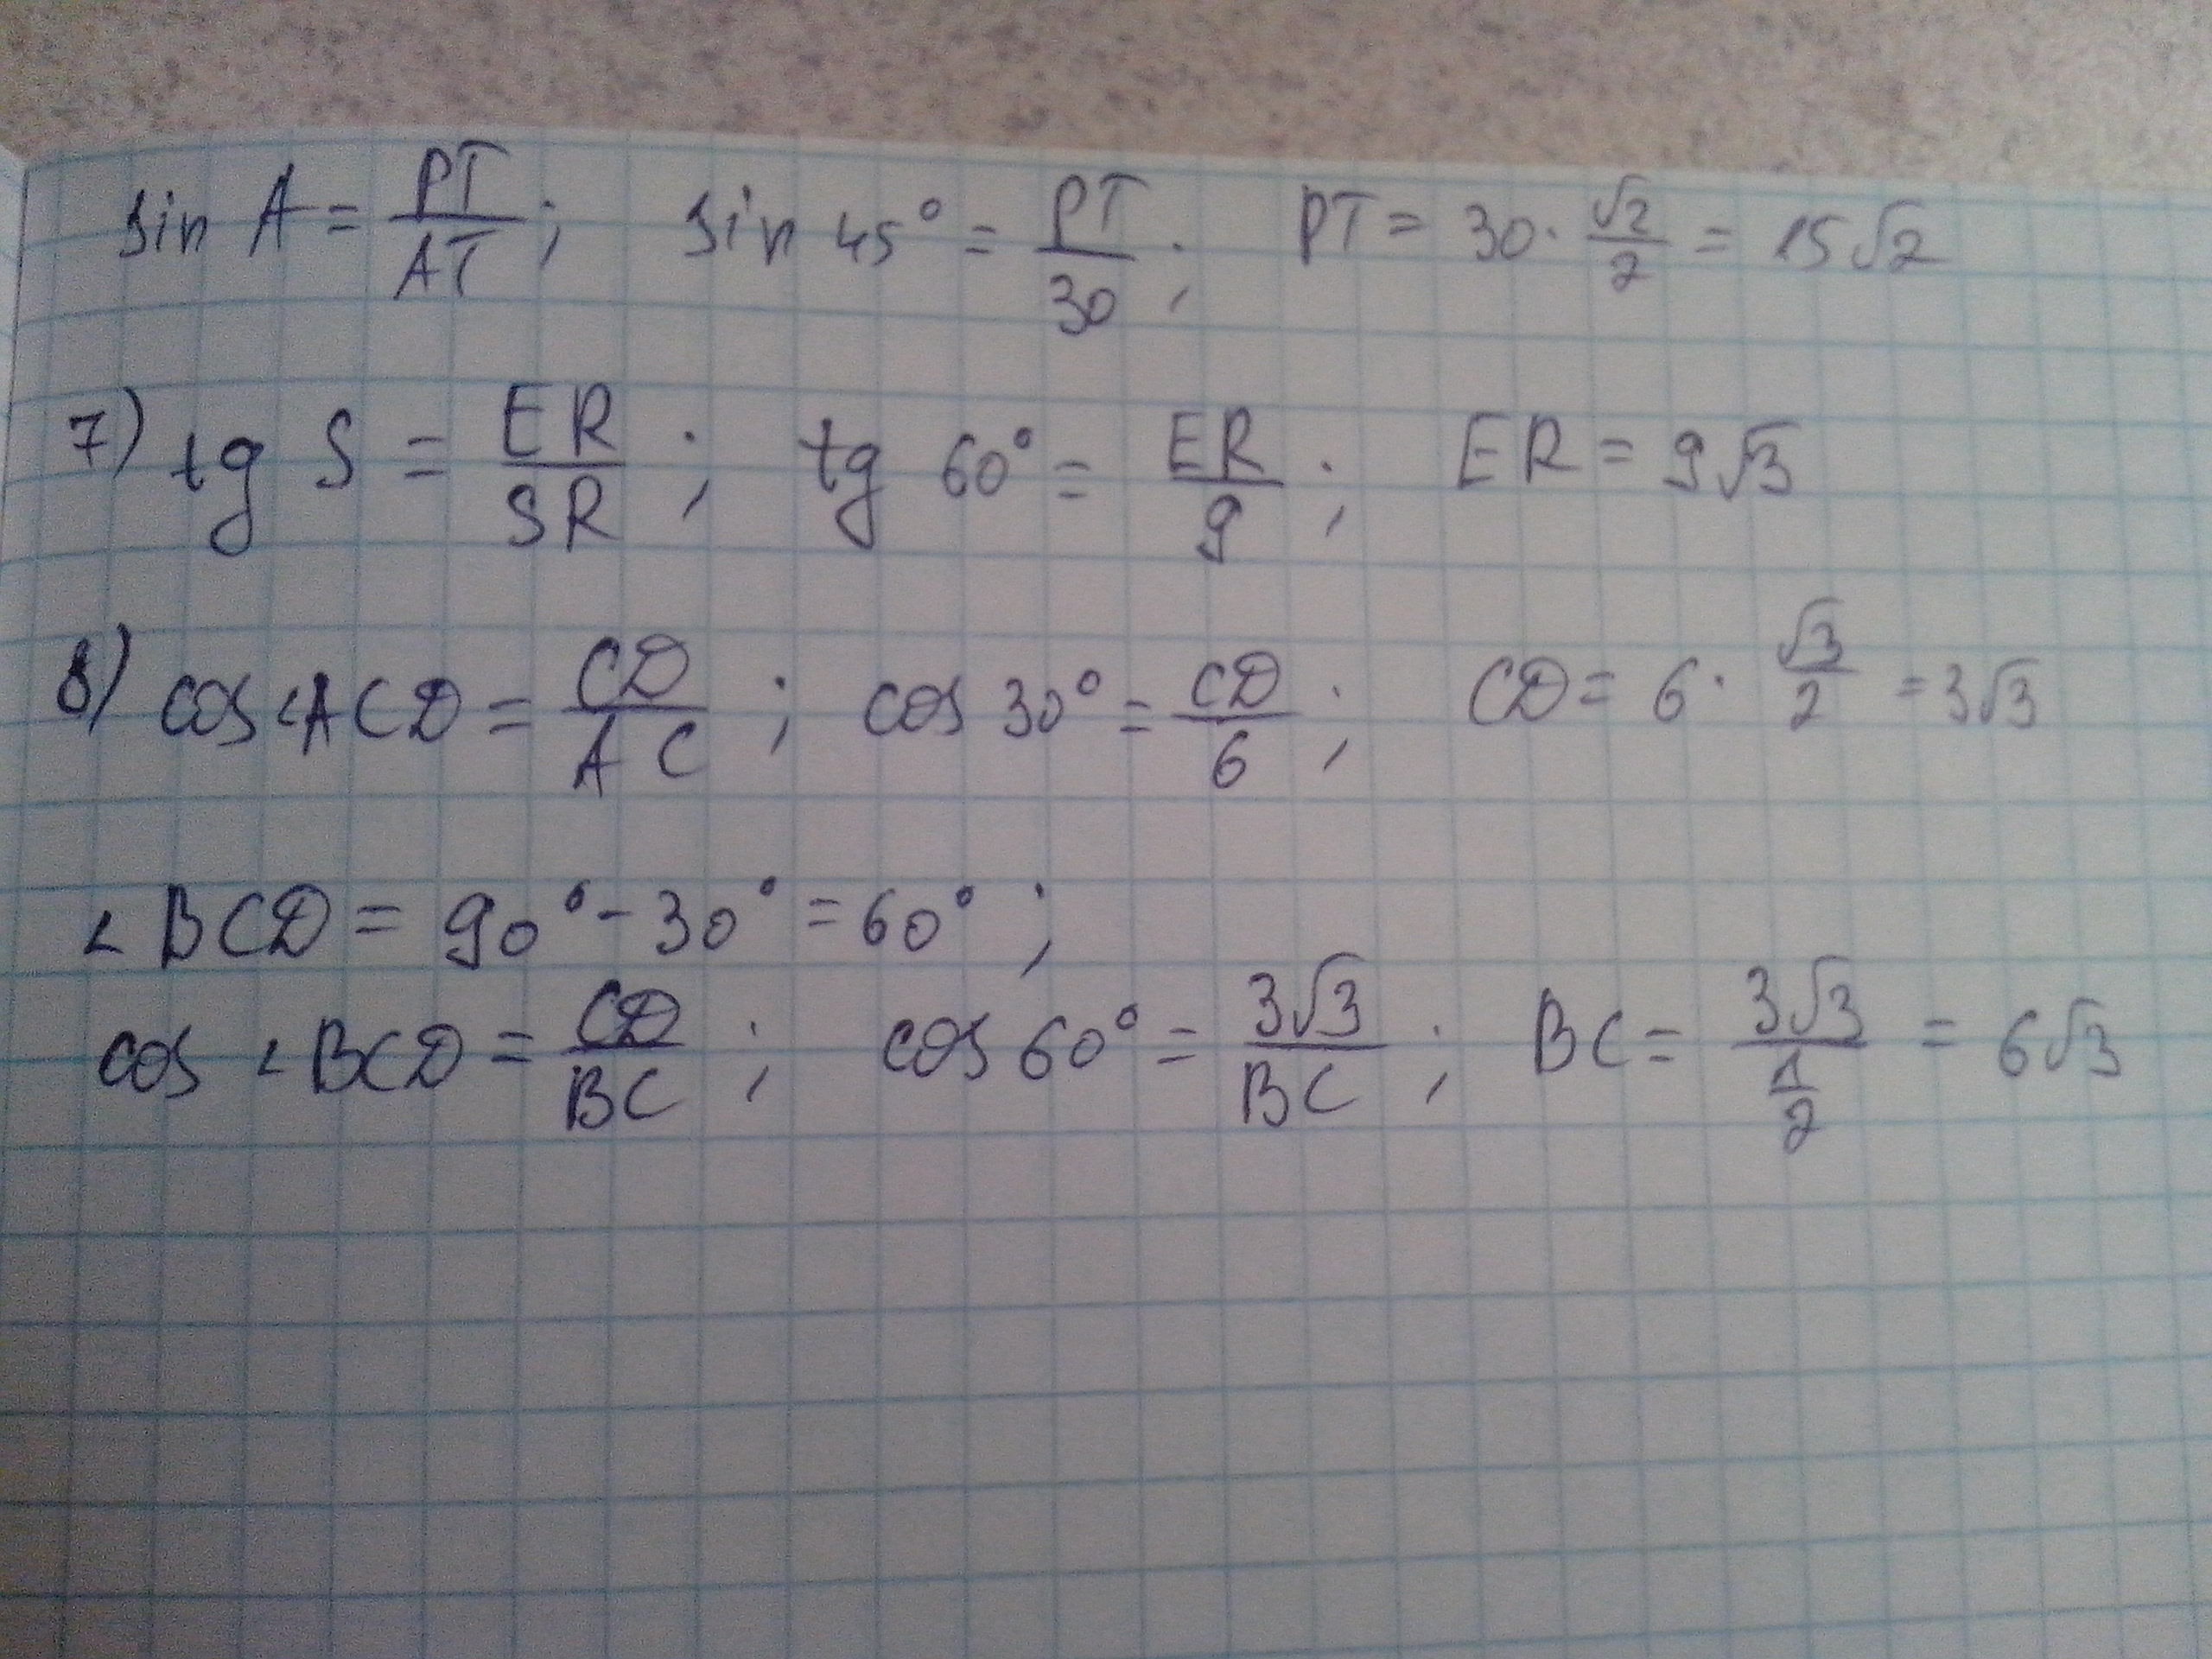 sin A = PT/AT; sin 45° = PT/30; PT = 30 · √2/2 = 15√2
7) tg S = ER/SR; tg 60° = ER/9; ER = 9√3
8) cos ∠ACD = CD/AC; cos 30° = CD/6; CD = 6 · √3/2 = 3√3
∠BCD = 90° - 30° = 60°;
cos ∠BCD = CD/BC; cos 60° = 3√3/BC; BC = 3√3/(1/2) = 6√3